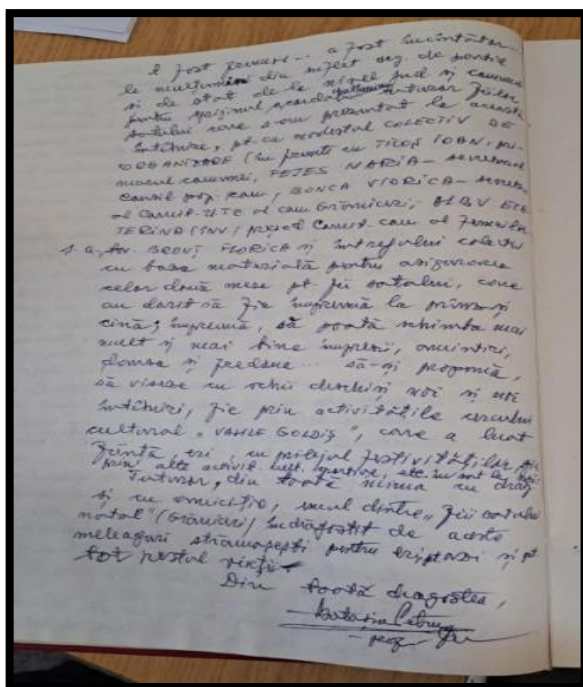 A fost frumos... a fost încântător...
le mulțumim din suflet org. de partid
și de stat de la nivel jud și comunal
pentru sprijinul acordat tuturor fiilor
satului care s-au prezentat la această
întîlnire, pt. ca modestul COLECTIV DE
ORGANIZARE (în frunte cu IOAN, pri-
marul comunei, FEJES MARIA - secretarul
Consil pop. com, BONCA VIORICA - secretar
al Comit. UTC al com Grăniceri, ALBU ECA-
TERINA (înv) președ Comit. com al Femeilor
ș.a., înv. FLORICA și întregului colectiv
cu baza materială pentru asigurarea
celor două mese pt fii satului, care
au dorit să fie împreună la prînz și
cină; împreună, să poată schimba mai
mult și mai bine impresii, amintiri,
și să-și propună,
să viseze cu ochii deschiși noi și noi
întîlniri, fie prin activitățile cercului
cultural „VASILE GOLDIȘ", care a luat
ființă eri, cu prilejul festivităților, fie
prin alte activit. cult. sportive, etc. în sat la noi
Tuturor, din toată inima cu drag
și cu amiciție, unul dintre „fii satului
natal" (Grăniceri) îndrăgostit de aceste
meleaguri strămoșești pentru eri, astăzi și pt
tot restul vieții.
Din toată dragostea,
prof